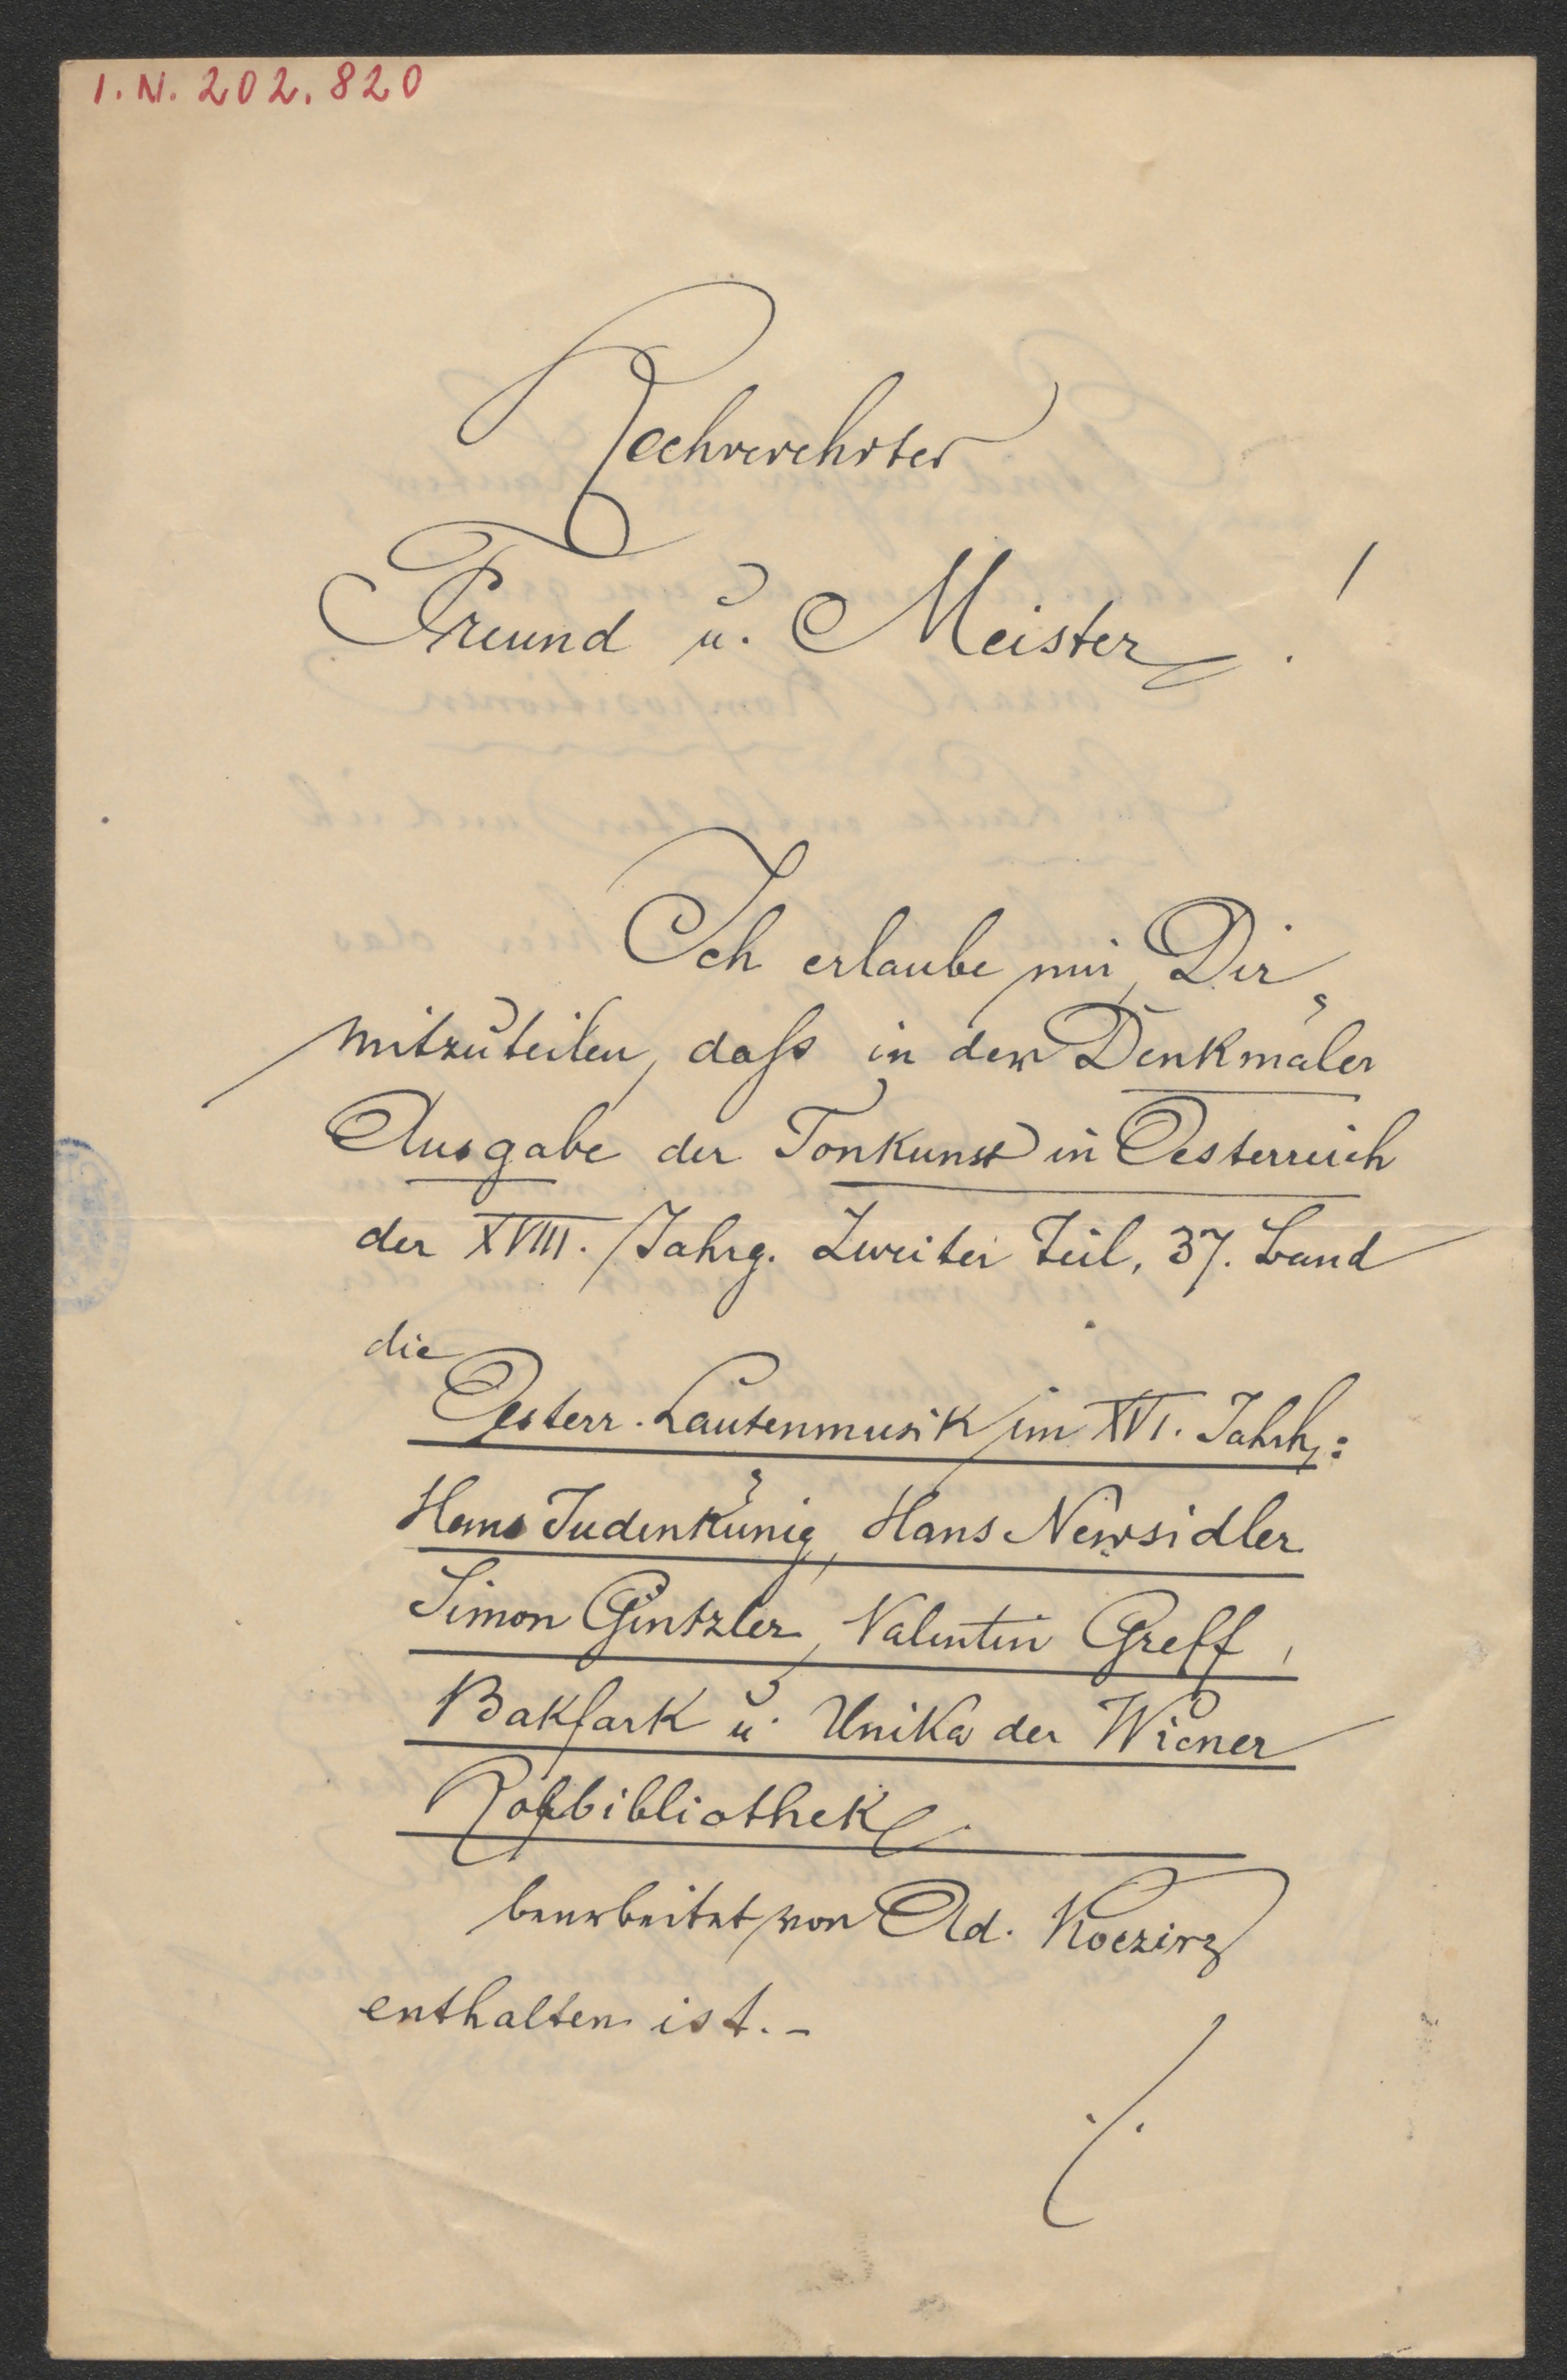 I. N. 202.820
Hochverehrter
Freund u. Meister!
Ich erlaube mir, Dir
mitzuteilen, daß in der Denkmäler
Ausgabe der Tonkunst in Oesterreich
der XVIII. Jahrg. Zweiter Teil, 37. Band
die
Oesterr. Lautenmusik im XVI. Jahrh.:
Hans Judenkünig, Hans Newsidler
Simon Gintzler, Valentin Greff,
Bakfark u. Unika der Wiener
Hofbibliothek
bearbeitet von Ad. Koczirz
enthalten ist. -
./.